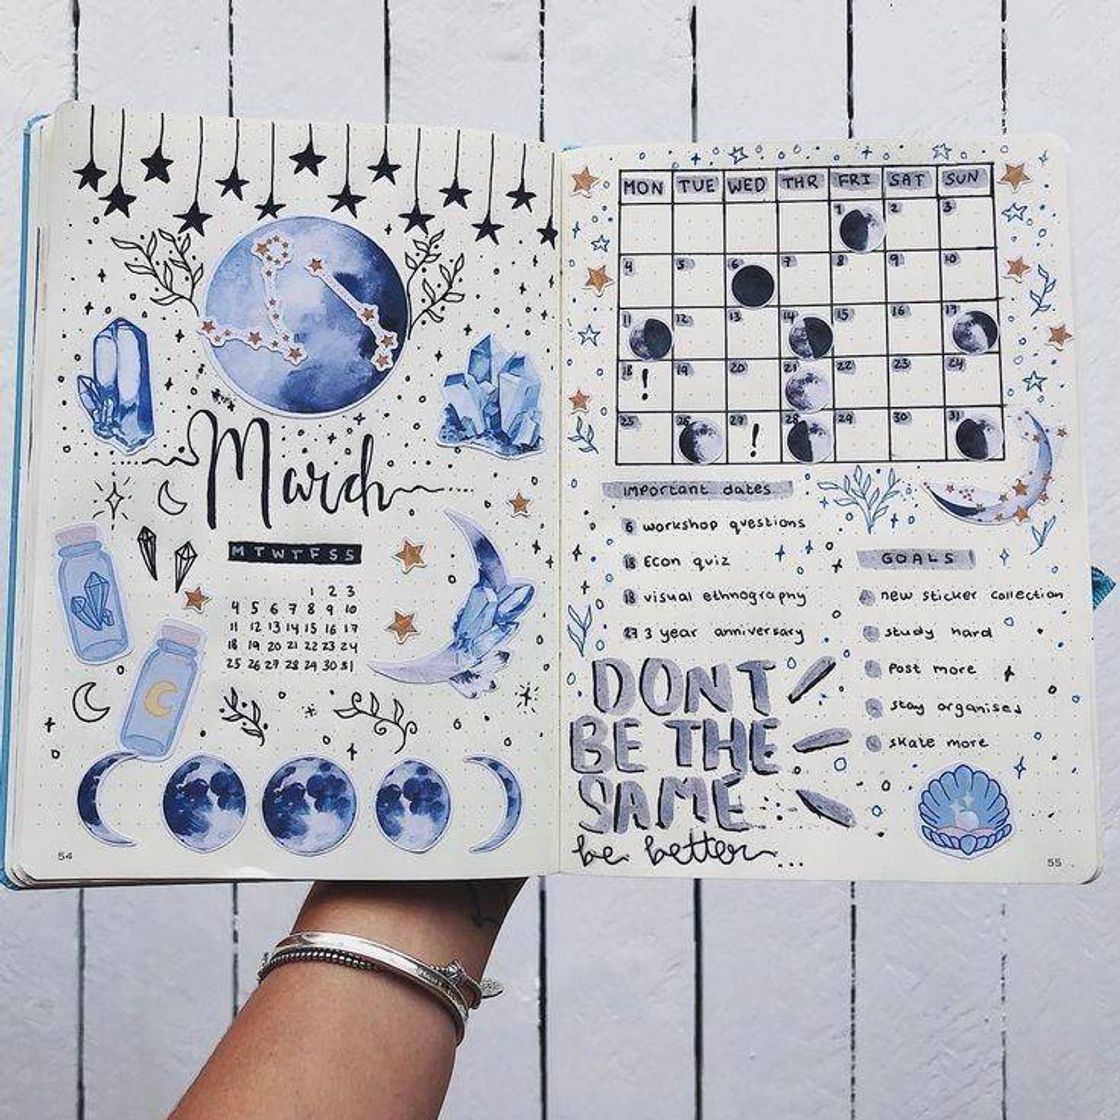 March
M T W T F S S
1 2 3
4 5 6 7 8 9 10
11 12 13 14 15 16 17
18 19 20 21 22 23 24
25 26 27 28 29 30 31
54
MON TUE WED THR FRI SAT SUN
1 2 3
4 5 6 7 8 9 10
11 12 13 14 15 16 17
18 ! 19 20 21 22 23 24
25 26 27 ! 28 29 30 31
important dates
6 workshop questions
18 Econ quiz
18 visual ethnography
27 3 year anniversary
GOALS
new sticker collection
study hard
post more
stay organised
skate more
DONT
BE THE
SAME
be better...
55